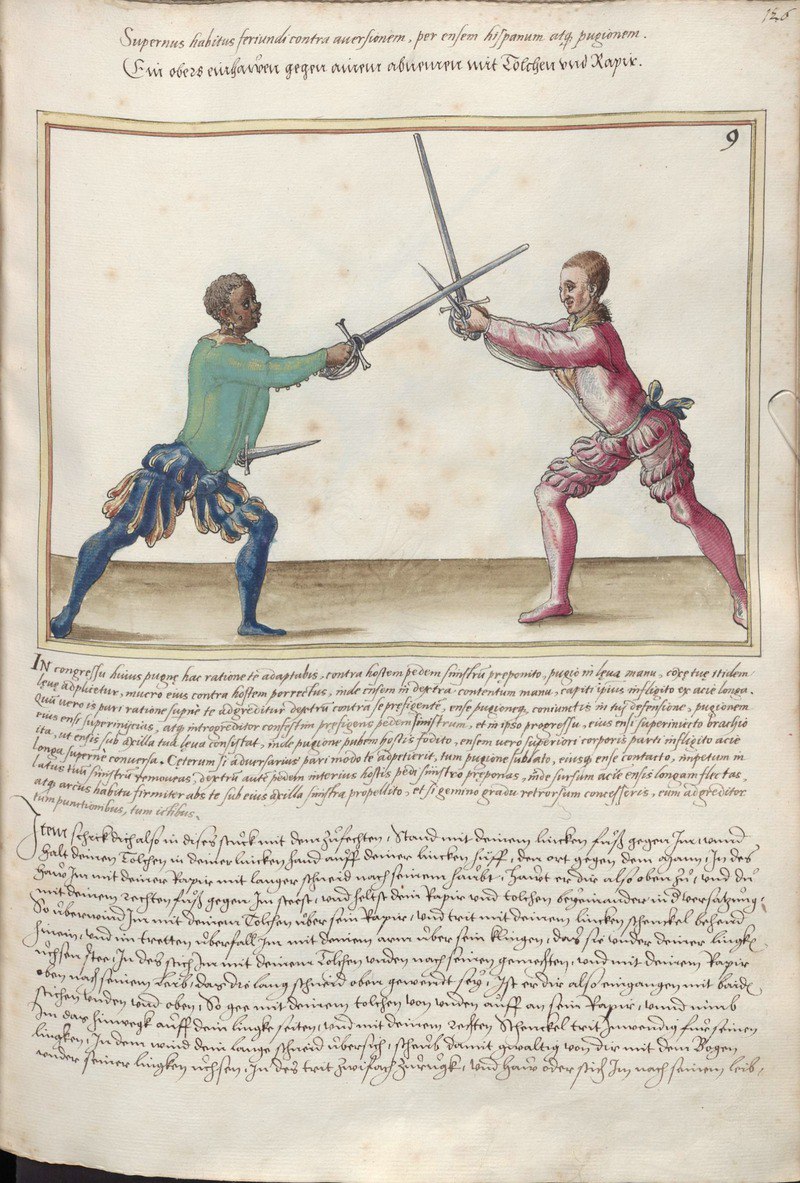 126
Supernus habitus feriundi contra aversionem, per ensem hispanum atq pugionem.
Ein obers einhauwen gegen ainem abnemen mit Tolchen und Rapir.
9
IN congressu huius pugnę hac ratione te adaptabis, contra hostem pedem sinistrū pręponito, pugio in lęva manu, coxę tuę itidem
lęvę adplicetur, mucro eius contra hostem porrectus, inde ensem in dextra contentum manu, capiti ipius infligito ex acie longa.
Quū vero is pari ratione supne te adgreditur dextrū contra te pręfigente, ense pugioneq, coniunctis in tuj defensione, pugionem
eius ense superinijcias, atq introgreditor confestim pręfigens pedem sinistrum, et in ipso progressu, eius ensi superiniecto brachio
ita, ut ensis sub axilla tua leva consistat, inde pugione pubem hostis fodito, ensem vero superiori corporis parti infligito acie
longa superne conversa. Cęterum si adversarius pari modo te adpetierit, tum pugione sublato, eiusq ense contacto, impetum in
latus tuū sinistrū removeas, dextrū autē pedem interius hostis pedi sinistro preponas, inde sursum acie ensis longam flectas,
atq arcus habitu firmiter abs te sub eius axilla sinistra propellito, et si gemino gradu retrorsum concesseris, eum adgreditor
tum punctionibus, tum ictibus.
Item schick dich also in dises stuck mit dem zufechten, Stand mit deinem lincken fuß gegen Im, unnd
halt deinen Tolchen in deiner lincken hand auff deiner lincken hüff, den ort gegen dem mann, In des
hauw Im mit deiner Rapir mit langer schneid nach seinem haubt, Hauwt er dir also oben zu, und du
mit deinem rechten fuß gegen Im steest, und heltst dein Rapir und tolchen beyeinander in d versatzung,
So überwind Im mit deinem Tolchen über sein Rapir, und trit mit deinem lincken schenckel behend
hinein, und im tretten überfall Im mit deinem arm über sein klingen, das sie under deiner lingkē
üchsen stee, In des stich Im mit deinem Tolchen unden nach seinen gemechten, und mit deinem Rapir
oben nach seinem leib, das die lang schneid oben gewendt sey, Ist er dir also eingangen mit baidē
stichen unden und oben, So gee mit deinem tolchen von unden auff an sein Rapir, unnd nimb
Im das hinwegk auff dein lingke seiten, und mit deinem rechten Schenckel trit Inwendig für seinen
lingken, In dem wind dein lange schneid übersich, scheub damit gewaltig von dir mit dem Bogen
under seiner lingken üchsen, In des trit zwifach zurugk, unnd hauw oder stich Im nach seinem leib,